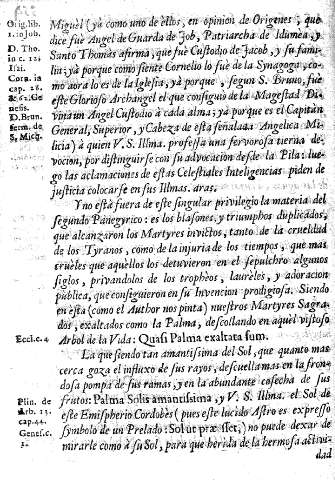 Orig. lib.
1. in Job.
D. Tho.
in c. 12.
Isai.
Corn. in
cap. 28.
& 62. Genes.
D. Brun.
serm. de
S. Mich.
Miguèl (yà como uno de ellos, en opinion de Origenes; que
dice fuè Angel de Guarda de Job, Patriarcha de Idumèa, y
Santo Thomàs afirma, que fuè Custodio de Jacob, y su fami-
lia; yà porque como siente Cornelio lo fuè de la Synagoga, co-
mo aora lo es de la Iglesia, yà porque, segun S. Bruno, fuè
este Glorioso Archangel el que consiguiò de la Magestad Di-
vina un Angel Custodio à cada alma; yà porque es el Capitàn
General, Superior, y Cabeza de esta señalada Angelica Mi-
licia) à quien V. S. Illma. professa una fervorosa tierna de-
vocion, por distinguirse con su advocacion desde la Pila: lue-
go las aclamaciones de estas Celestiales Inteligencias piden de
justicia colocarse en sus Illmas. aras.
Y no està fuera de este singular privilegio la materia del
segundo Panegyrico: es los blasones, y triumphos duplicados,
que alcanzaron los Martyres invictos, tanto de la crueldad
de los Tyranos, como de la injuria de los tiempos, que mas
cruèles que aquellos los detuvieron en el sepulchro algunos
siglos, privandolos de los trophèos, laurèles, y adoracion
pùblica, que consiguieron en su Invencion prodigiosa. Siendo
en èsta (como el Author nos pinta) nuestros Martyres Sagra-
dos, exaltados como la Palma, descollando en aquel vistoso
Eccli. c. 4 Arbol de la Vida: Quasi Palma exaltata sum.
La que siendo tan amantissima del Sol, que quanto mas
cerca goza el influxo de sus rayos, descuellamas en la fron-
dosa pompa de sus ramas, y en la abundante cosecha de sus
Plin. de
Arb. 13.
cap. 44.
Genes. c.
1.
frutos: Palma Solis amantissima, y V. S. Illma. el Sol de
este Emispherio Cordobès (pues este lucido Astro es expresso
symbolo de un Prelado: Sol ut præ sset,) no puede dexar de
mirarle como à su Sol, para que herida de la hermosa activi-
dad